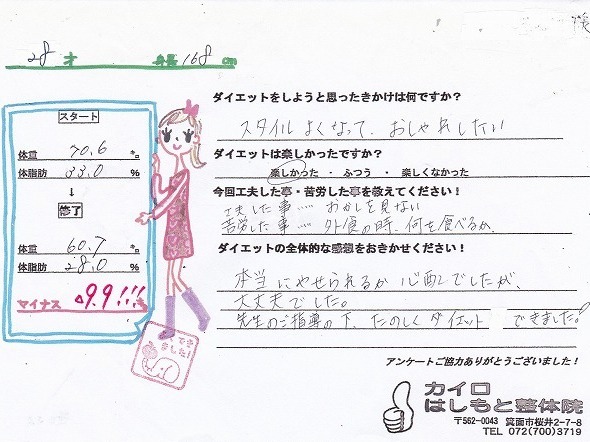 様
28 才 身長 168 cm
スタート
体重 70.6 キロ
体脂肪 33.0 %
↓
終了
体重 60.7 キロ
体脂肪 28.0 %
マイナス △9.9!!!
よくできました!
ダイエットをしようと思ったきかけは何ですか?
スタイルよくなって、おしゃれしたい
ダイエットは楽しかったですか?
楽しかった ・ ふつう ・ 楽しくなかった
今回工夫した事・苦労した事を教えてください!
工夫した事…… おかしを見ない
苦労した事…… 外食の時、何を食べるか、
ダイエットの全体的な感想をおきかせください!
本当にやせられるか心配でしたが、
大丈夫でした。
先生のご指導の下、たのしくダイエットできました!
アンケートご協力ありがとうございました!
カイロ
はしもと整体院
〒562-0043 箕面市桜井2-7-8
TEL 072(700)3719